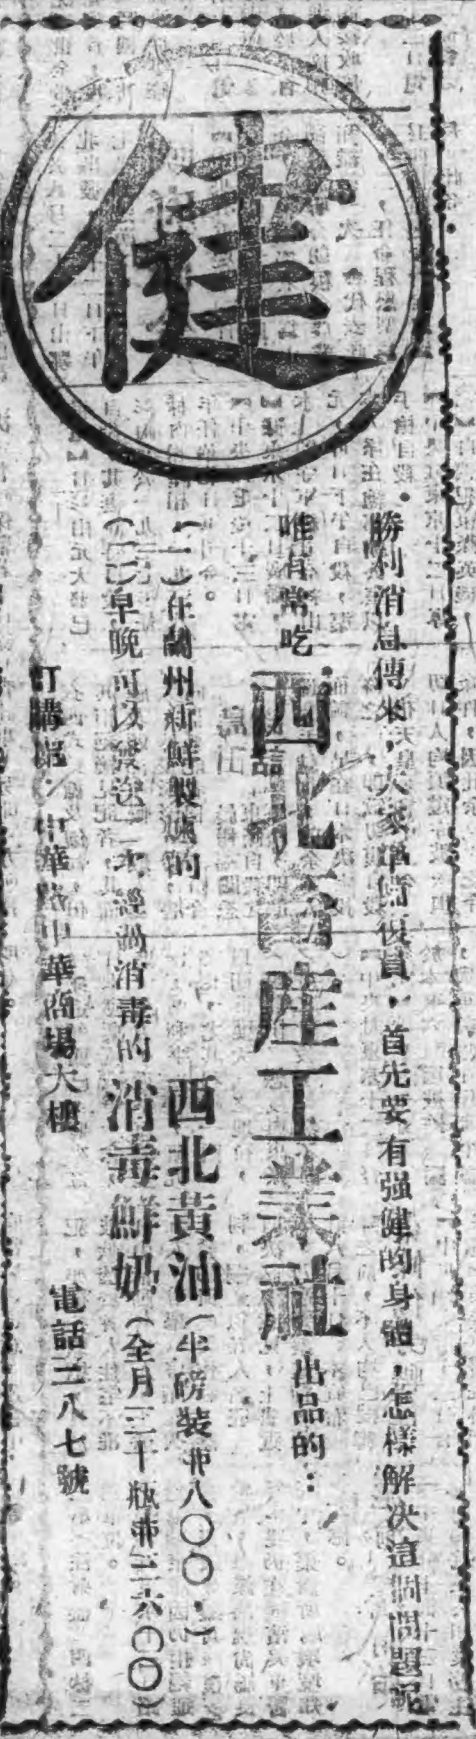 健
勝利消息傳來，大家準備復員，首先要有强健的身體，怎樣解决這個問題呢
唯有常吃西北畜產工業社出品的：
（一）在蘭州新鮮製煉的西北黃油（半磅裝．八〇〇．）
（二）早晚可以發送二次經過消毒的消毒鮮奶（全月三十瓶 三六〇〇）
訂購處：中華路中華商場大樓　電話二八七號